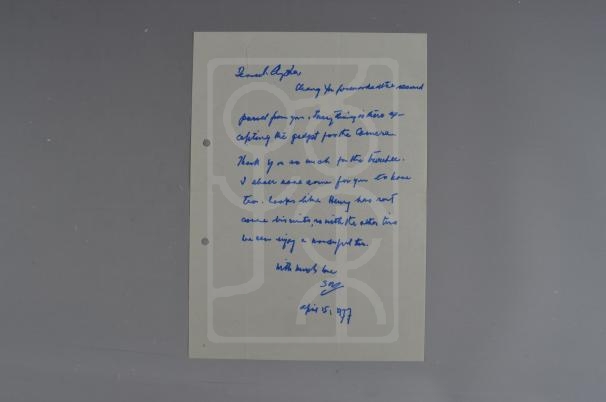 Chang Yu forwarded the second
parcel from you. Everything is there ex-
cepting the gadget for the Camera
Thank you so much for the trouble.
I shall save some for you to have
too. Looks like Henry has sent
some biscuits, so with the other tins
we can enjoy a wonderful tea.
With much love
April 15, 1977